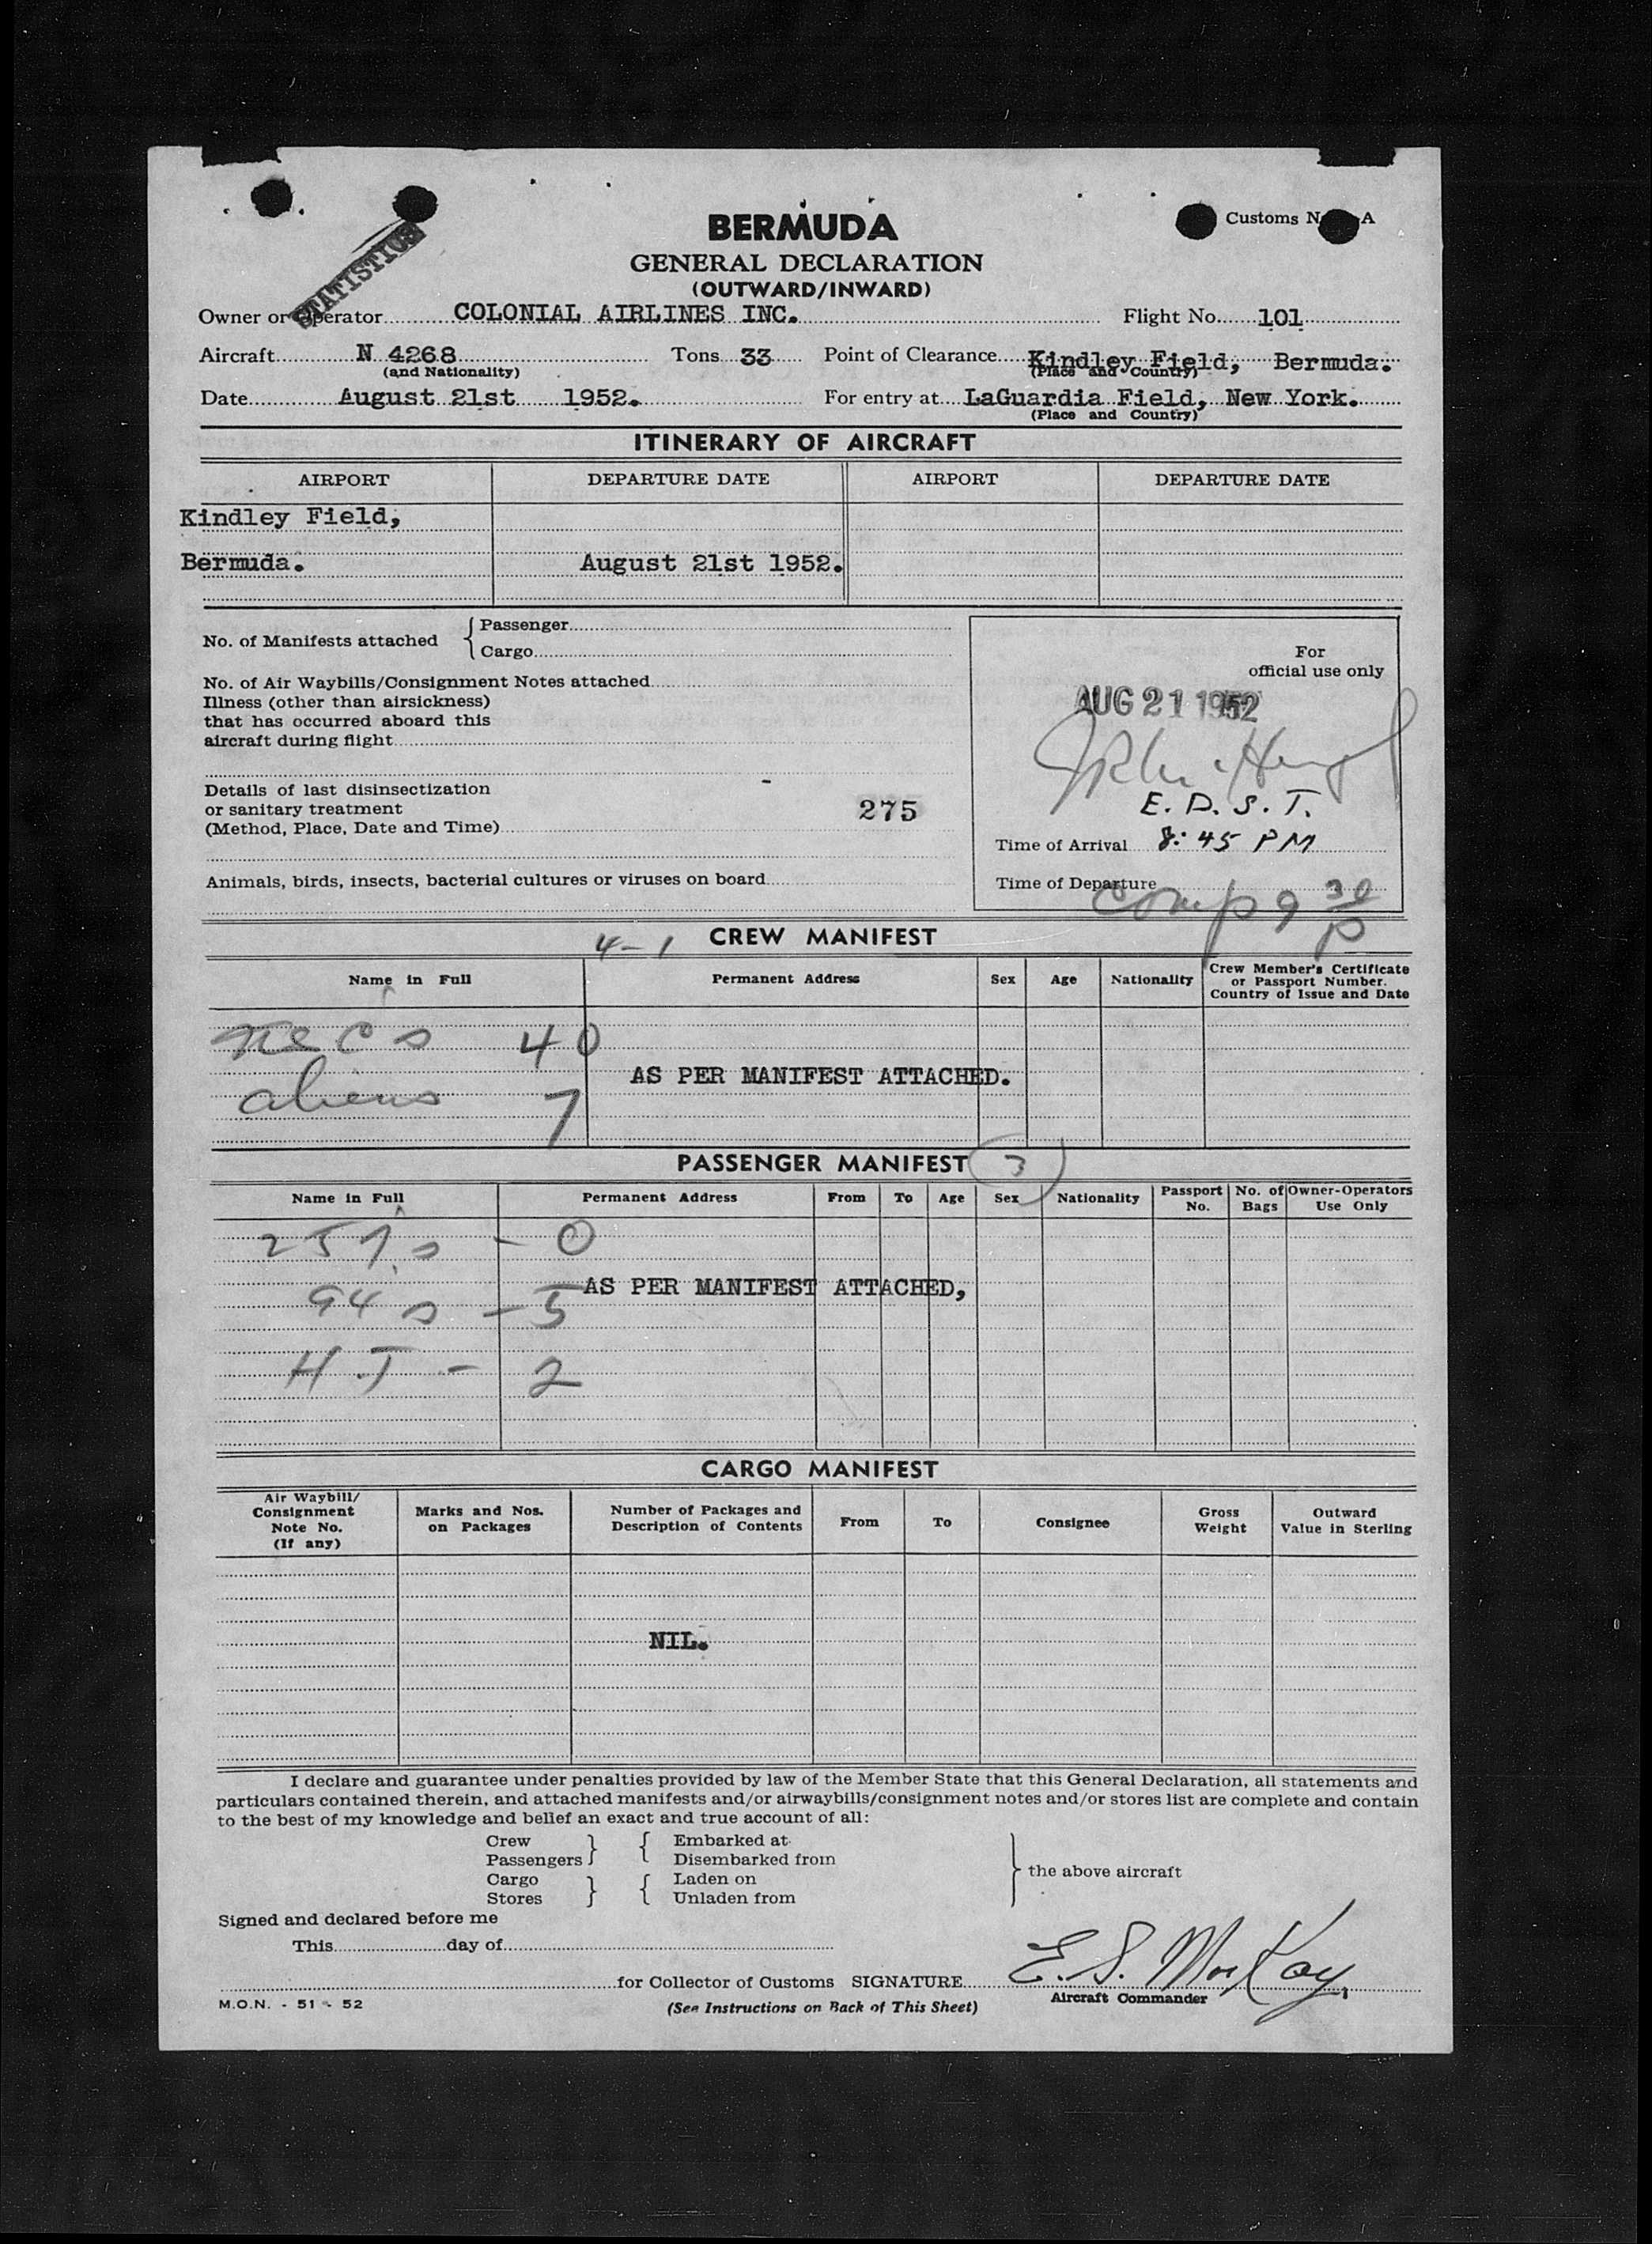 Customs N A
BERMUDA
GENERAL DECLARATION
(OUTWARD/INWARD)
STATISTICS
Owner or Operator COLONIAL AIRLINES INC. Flight No. 101
Aircraft N 4268 Tons 33 Point of Clearance Kindley Field, Bermuda.
(and Nationality) (Place and Country)
Date August 21st 1952. For entry at LaGuardia Field, New York.
(Place and Country)
ITINERARY OF AIRCRAFT
AIRPORT DEPARTURE DATE AIRPORT DEPARTURE DATE
Kindley Field,
Bermuda. August 21st 1952.
No. of Manifests attached { Passenger
Cargo
No. of Air Waybills/Consignment Notes attached
Illness (other than airsickness)
that has occurred aboard this
aircraft during flight
Details of last disinsectization
or sanitary treatment
(Method, Place, Date and Time)
275
Animals, birds, insects, bacterial cultures or viruses on board
For
official use only
AUG 21 1952
E. D. S. T.
Time of Arrival 8:45 PM
Time of Departure
Comp 9 30 P
4-1 CREW MANIFEST
Name in Full Permanent Address Sex Age Nationality Crew Member's Certificate
or Passport Number.
Country of Issue and Date
40
AS PER MANIFEST ATTACHED.
aliens 7
PASSENGER MANIFEST 3
Name in Full Permanent Address From To Age Sex Nationality Passport No. No. of Bags Owner-Operators Use Only
257s - 0
AS PER MANIFEST ATTACHED,
94s - 5
H.T - 2
CARGO MANIFEST
Air Waybill/
Consignment
Note No.
(If any) Marks and Nos.
on Packages Number of Packages and
Description of Contents From To Consignee Gross
Weight Outward
Value in Sterling
NIL.
I declare and guarantee under penalties provided by law of the Member State that this General Declaration, all statements and
particulars contained therein, and attached manifests and/or airwaybills/consignment notes and/or stores list are complete and contain
to the best of my knowledge and belief an exact and true account of all:
Crew } { Embarked at
Passengers Disembarked from
Cargo } { Laden on
Stores Unladen from
} the above aircraft
Signed and declared before me
This day of
for Collector of Customs SIGNATURE E. S. MacKay
Aircraft Commander
M.O.N. - 51 - 52
(See Instructions on Back of This Sheet)